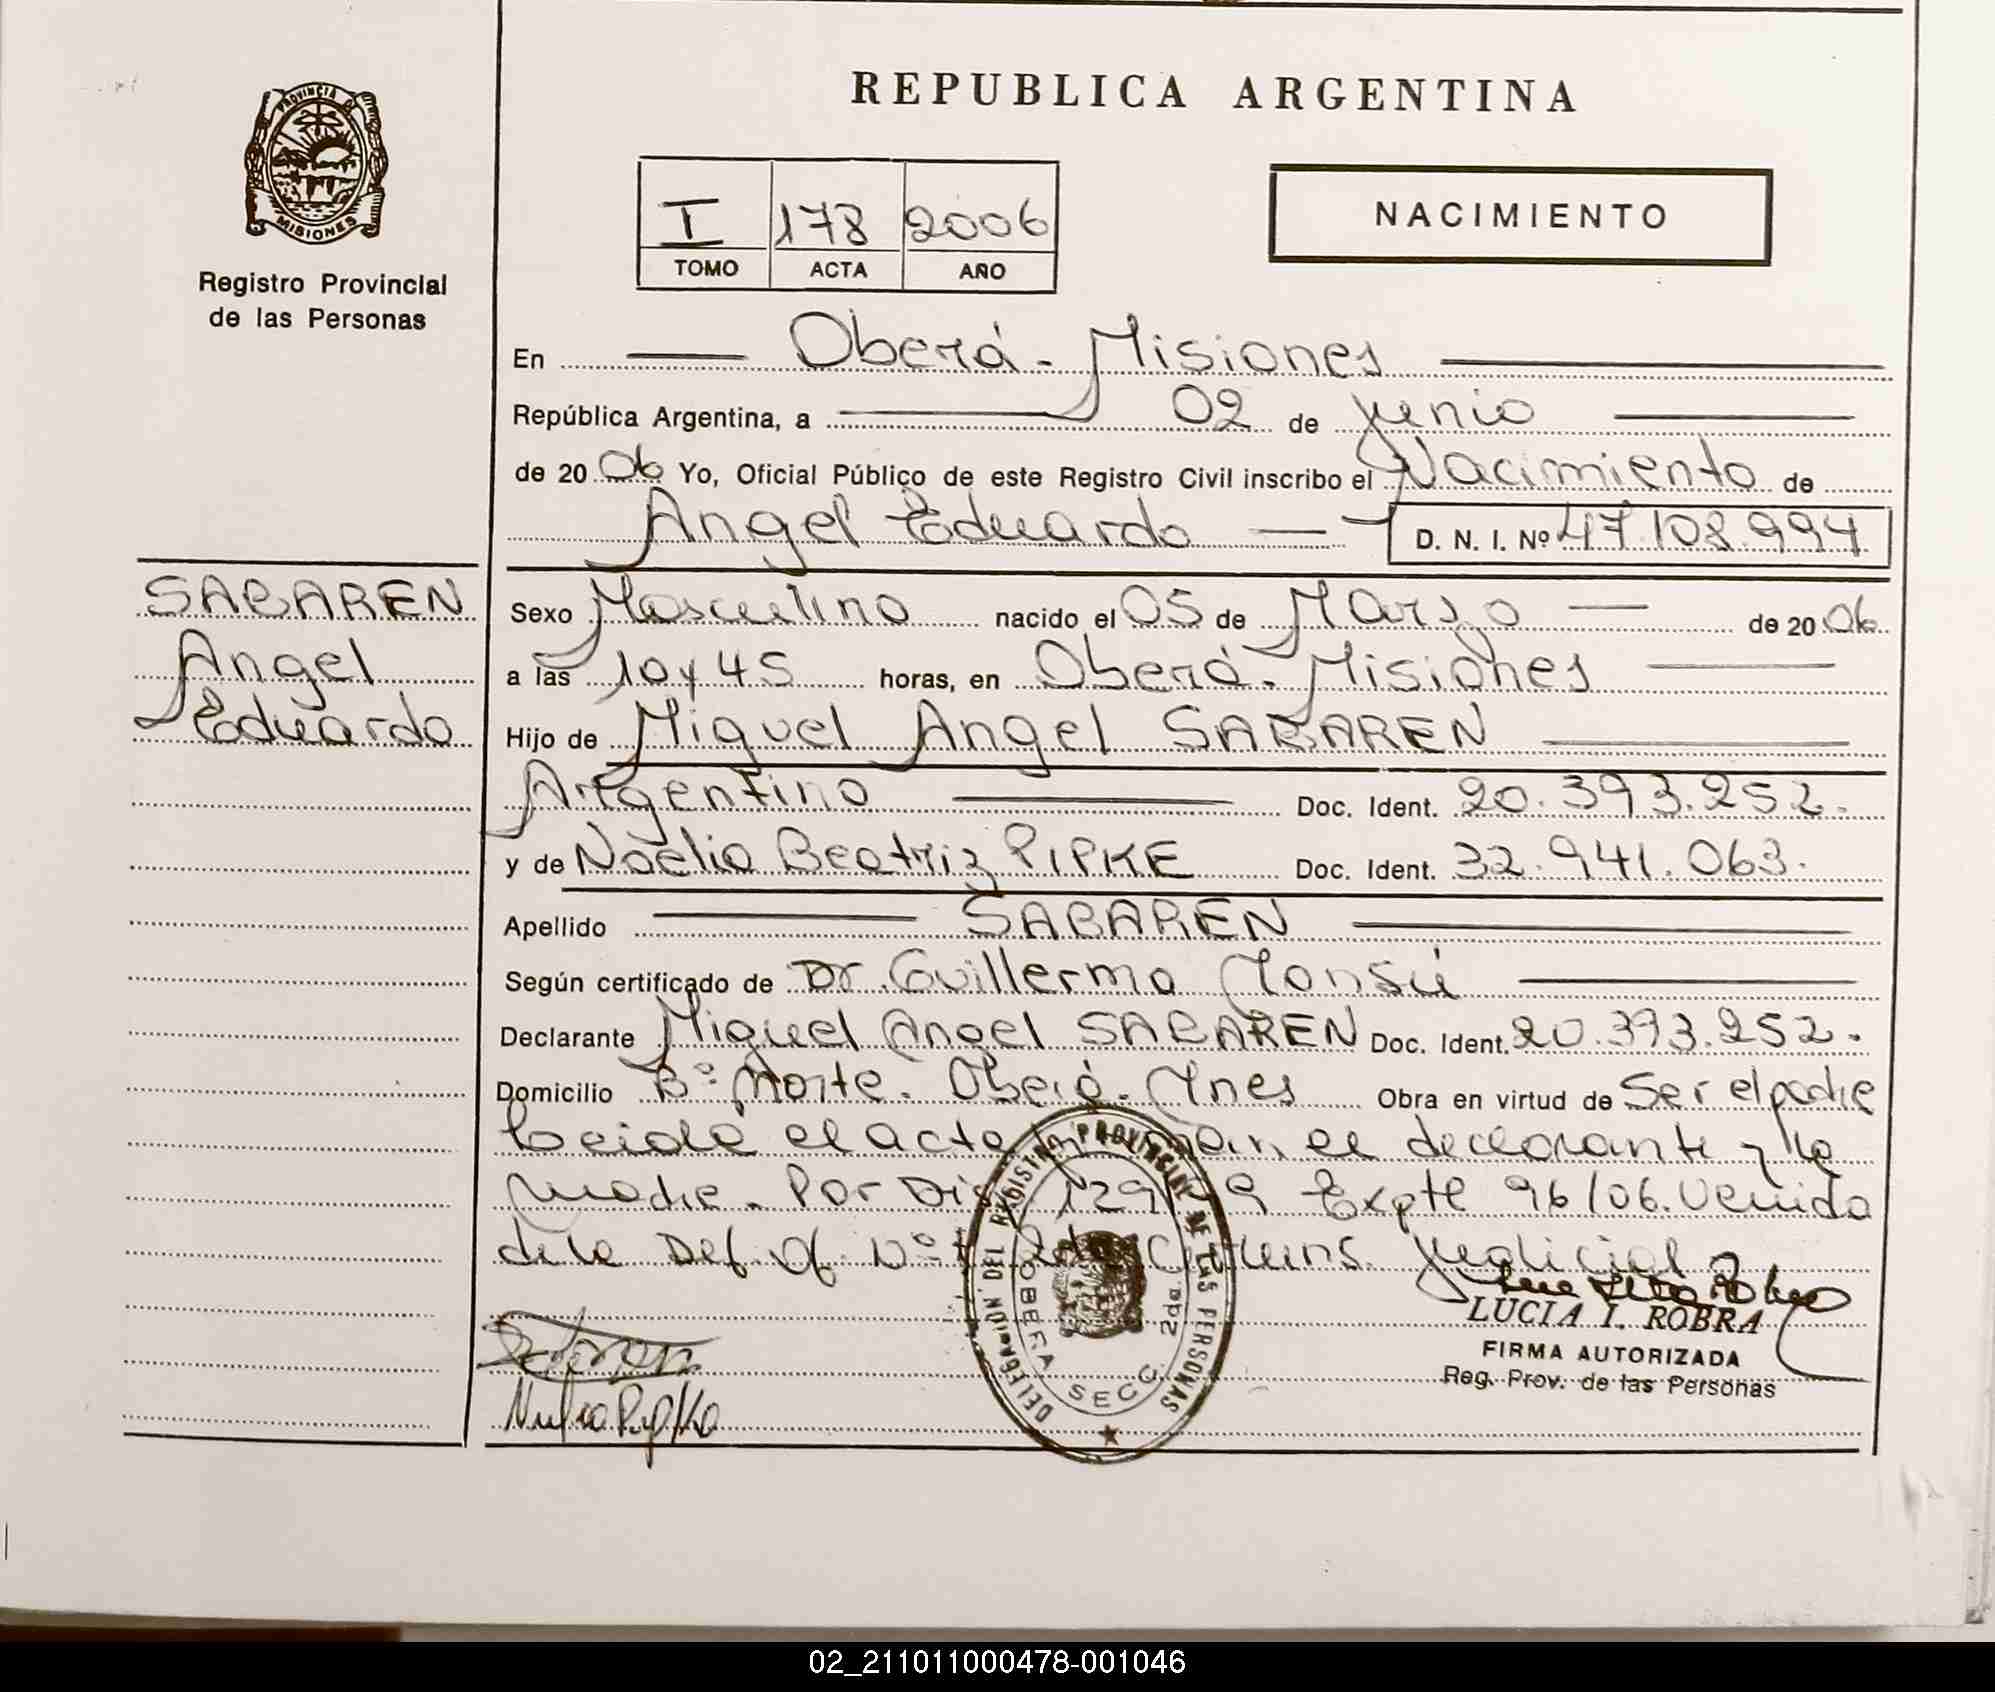 REPUBLICA ARGENTINA
PROVINCIA DE
MISIONES
Registro Provincial
de las Personas
I 178 2006
TOMO ACTA AÑO
NACIMIENTO
En Oberá - Misiones
República Argentina, a 02 de junio
de 2006 Yo, Oficial Público de este Registro Civil inscribo el Nacimiento de
Angel Eduardo D. N. I. Nº 47.108.994
SABAREN
Angel
Eduardo
Sexo Masculino nacido el 05 de Marzo de 2006
a las 10 y 45 horas, en Oberá - Misiones
Hijo de Miguel Angel SABAREN
Argentino Doc. Ident. 20.393.252.
y de Noelia Beatriz PIPKE Doc. Ident. 32.941.063.
Apellido SABAREN
Según certificado de Dr. Guillermo Monsú
Declarante Miguel Angel SABAREN Doc. Ident. 20.393.252.
Domicilio Bº Norte. Oberá. Mnes Obra en virtud de Ser el padre
leida el acta el declarante y la
madre. Por Expte 96/06. venida
de la Def. Of. Nº judicial
DELEGACION DEL REGISTRO PROVINCIAL DE LAS PERSONAS
OBERA SECC. 2da
LUCIA I. ROBRA
FIRMA AUTORIZADA
Reg. Prov. de las Personas
02_211011000478-001046